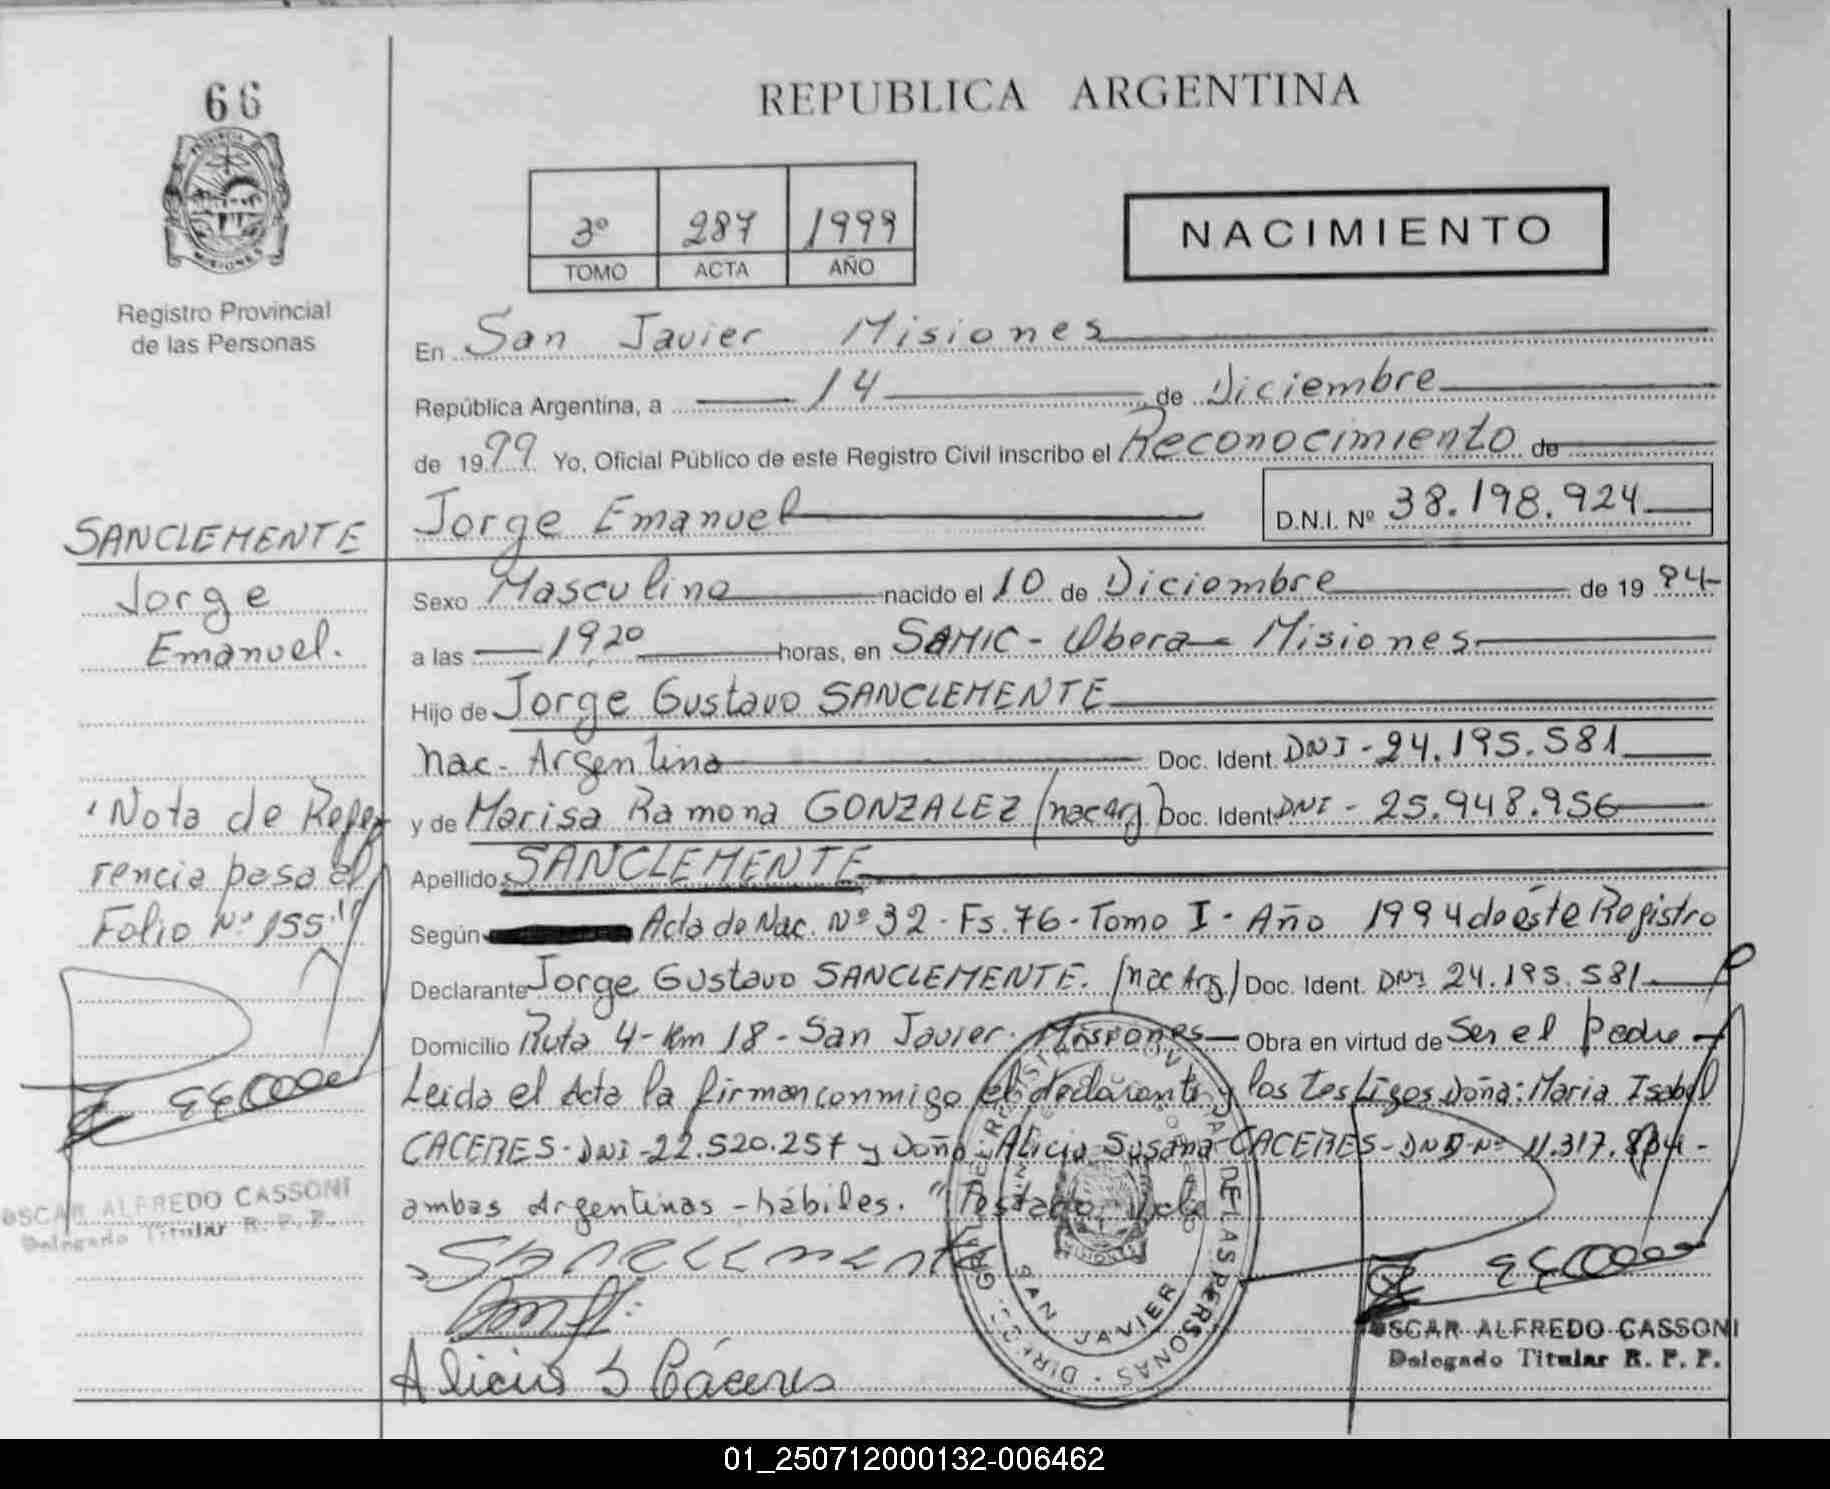 66
REPUBLICA ARGENTINA
PROVINCIA
MISIONES
Registro Provincial
de las Personas
3º 287 1999
TOMO ACTA AÑO
NACIMIENTO
En San Javier Misiones
República Argentina, a 14 de Diciembre
de 1999 Yo, Oficial Público de este Registro Civil inscribo el Reconocimiento de
Jorge Emanuel D.N.I. Nº 38.198.924
SANCLEMENTE
Jorge
Emanuel.
Sexo Masculino nacido el 10 de Diciembre de 1994
a las 19,20 horas, en SAMIC - Obera - Misiones
Hijo de Jorge Gustavo SANCLEMENTE
nac. Argentina Doc. Ident. DNI - 24.195.581
y de Marisa Ramona GONZALEZ (nac Arg) Doc. Ident DNI - 25.948.956
Apellido SANCLEMENTE
Según Acta de Nac. Nº 32 - Fs. 76 - Tomo I - Año 1994 de éste Registro
Declarante Jorge Gustavo SANCLEMENTE. (nac Arg) Doc. Ident. DNI 24.195.581
Domicilio Ruta 4 - Km 18 - San Javier. Misiones - Obra en virtud de Ser el padre -
Leida el Acta la firman conmigo el declarante y los testigos Doña: Maria Isabel
CACERES - DNI - 22.520.257 y Doña Alicia Susana CACERES - DNI - Nº 11.317.
ambas Argentinas - hábiles. "Testado Vale
"Nota de Refe
rencia pasa al
Folio Nº 155"
OSCAR ALFREDO CASSONI
Delegado Titular R. P. P.
Sanclemente
Alicia S Cáceres
SAN JAVIER
DE LAS PERSONAS
OSCAR ALFREDO CASSONI
Delegado Titular R. P. P.
01_250712000132-006462